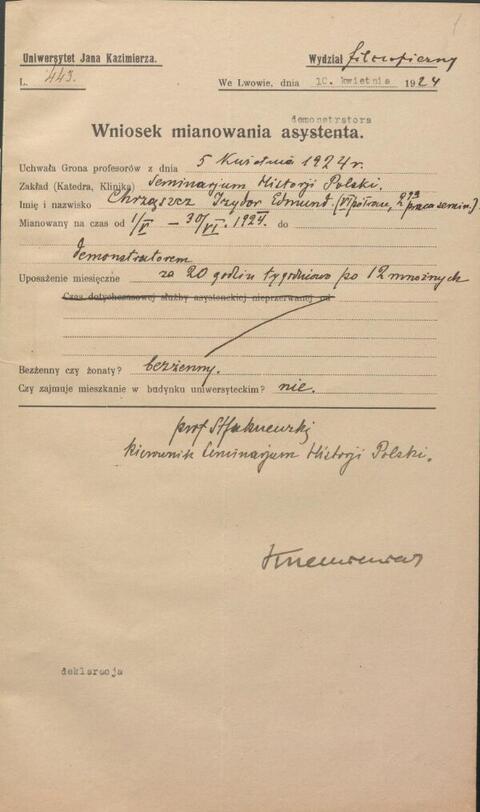 1
Uniwersytet Jana Kazimierza. Wydział filozoficzny
L. 443. We Lwowie, dnia 10. kwietnia 1924
demonstratora
Wniosek mianowania asystenta.
Uchwała Grona profesorów z dnia 5 Kwietnia 1924 r.
Zakład (Katedra, Klinika) Seminarjum Historji Polski.
Imię i nazwisko Chrząszcz Izydor Edmund (VI półrocze, 2 prace semin.)
Mianowany na czas od 1/V – 30/VI. 1924. do
demonstratorem
Uposażenie miesięczne za 20 godzin tygodniowo po 12 mnożnych
Czas dotychczasowej służby asystenckiej nieprzerwanej od
Bezżenny czy żonaty? bezżenny.
Czy zajmuje mieszkanie w budynku uniwersyteckim? nie.
prof
kierownik Seminarjum Historji Polski.
deklaracja